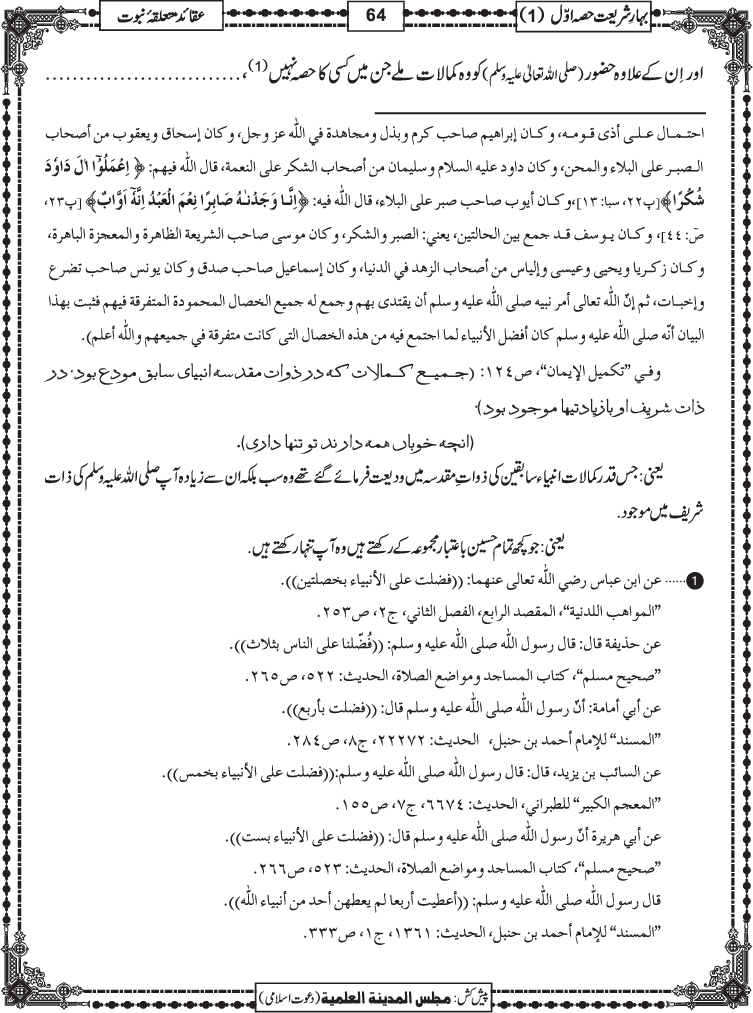 بہارِ شریعت حصہ اوّل (1)
64
عقائد متعلقۂ نبوت
اور اِن کے علاوہ حضور (صلی اللہ تعالیٰ علیہ وسلم) کو وہ کمالات ملے جن میں کسی کا حصہ نہیں(1)، .............................
احتمال على أذى قومه، وكان إبراهيم صاحب كرم وبذل ومجاهدة في اللّٰه عز وجل، وكان إسحاق ويعقوب من أصحاب
الصبر على البلاء والمحن، وكان داود عليه السلام وسليمان من أصحاب الشكر على النعمة، قال اللّٰه فيهم: ﴿اِعْمَلُوْٓا اٰلَ دَاوٗدَ
شُكْرًا﴾[پ۲۲، سبا: ۱۳]،وكان أيوب صاحب صبر على البلاء، قال اللّٰه فيه: ﴿اِنَّا وَجَدْنٰهُ صَابِرًا نِعْمَ الْعَبْدُ اِنَّهٗٓ اَوَّابٌ﴾ [پ۲۳،
صٓ: ٤٤]، وكان يوسف قد جمع بين الحالتين، يعني: الصبر والشكر، وكان موسى صاحب الشريعة الظاهرة والمعجزة الباهرة،
وكان زكريا ويحيى وعيسى وإلياس من أصحاب الزهد في الدنيا، وكان إسماعيل صاحب صدق وكان يونس صاحب تضرع
وإخبات، ثم إنّ اللّٰه تعالى أمر نبيه صلى اللّٰه عليه وسلم أن يقتدى بهم وجمع له جميع الخصال المحمودة المتفرقة فيهم فثبت بهذا
البيان أنّه صلى اللّٰه عليه وسلم كان أفضل الأنبياء لما اجتمع فيه من هذه الخصال التى كانت متفرقة في جميعهم واللّٰه أعلم).
وفي ”تكميل الإيمان“، ص١٢٤: (جميع كمالات كه در ذوات مقدسه انبياى سابق مودع بود، در
ذات شريف او با زيادتيها موجود بود)،
(انچه خوباں همه دارند تو تنها دارى).
یعنی: جس قدر کمالات انبیاء سابقین کی ذواتِ مقدسہ میں ودیعت فرمائے گئے تھے وہ سب بلکہ ان سے زیادہ آپ صلی اللہ علیہ وسلم کی ذات
شریف میں موجود.
یعنی: جو کچھ تمام حسین باعتبار مجموعہ کے رکھتے ہیں وہ آپ تنہا رکھتے ہیں.
1...... عن ابن عباس رضي اللّٰه تعالى عنهما: ((فضلت على الأنبياء بخصلتين)).
”المواهب اللدنية“، المقصد الرابع، الفصل الثاني، ج٢، ص٢٥٣.
عن حذيفة قال: قال رسول اللّٰه صلى اللّٰه عليه وسلم: ((فُضّلنا على الناس بثلاث)).
”صحيح مسلم“، كتاب المساجد ومواضع الصلاة، الحديث: ٥٢٢، ص٢٦٥.
عن أبي أمامة: أنّ رسول اللّٰه صلى اللّٰه عليه وسلم قال: ((فضلت بأربع)).
”المسند“ للإمام أحمد بن حنبل، الحديث: ٢٢٢٧٢، ج٨، ص٢٨٤.
عن السائب بن يزيد، قال: قال رسول اللّٰه صلى اللّٰه عليه وسلم:((فضلت على الأنبياء بخمس)).
”المعجم الكبير“ للطبراني، الحديث: ٦٦٧٤، ج٧، ص١٥٥.
عن أبي هريرة أنّ رسول اللّٰه صلى اللّٰه عليه وسلم قال: ((فضلت على الأنبياء بست)).
”صحيح مسلم“، كتاب المساجد ومواضع الصلاة، الحديث: ٥٢٣، ص٢٦٦.
قال رسول اللّٰه صلى اللّٰه عليه وسلم: ((أعطيت أربعا لم يعطهن أحد من أنبياء اللّٰه)).
”المسند“ للإمام أحمد بن حنبل، الحديث: ١٣٦١، ج١، ص٣٣٣.
پیش کش: مجلس المدينة العلمية (دعوتِ اسلامی)